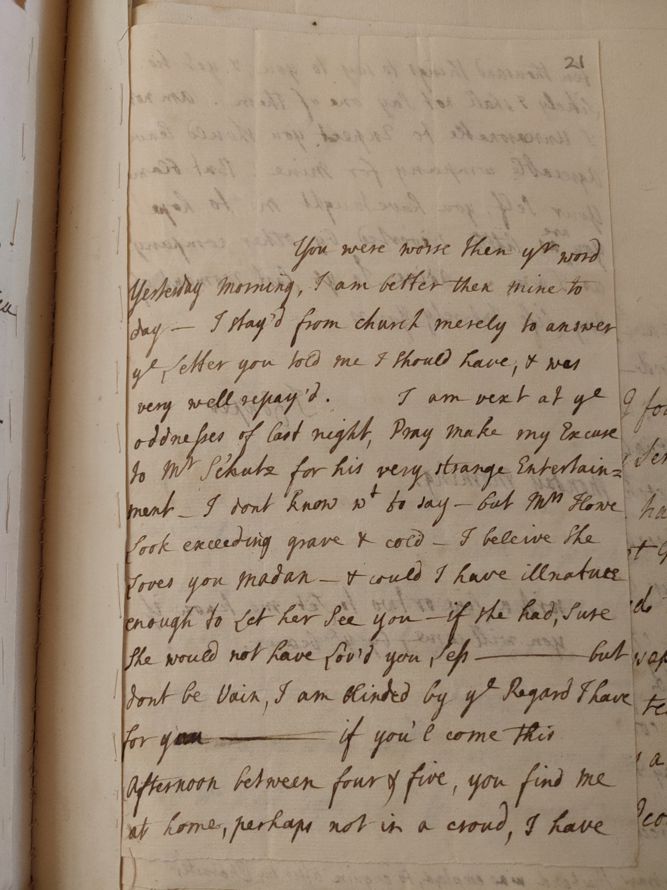 21
You were worse then yr word
Yesterday Morning, I am better then mine to
day — I stay'd from church merely to answer
ye Letter you told me I should have, & was
very well repay'd. I am vext at ye
oddnesses of last night, Pray make my Excuse
to Mr Schutz for his very strange Entertain=
ment — I dont know wt to say — but Mrs Howe
Look exceeding grave & cold — I beleive She
Loves you madam — & could I have illnature
enough to Let her See you — if she had, Sure
She would not have Lov'd you Less — but
dont be Vain, I am blinded by ye Regard I have
for you — if you'l come this
Afternoon between four & five, you find me
at home, perhaps not in a croud, I have